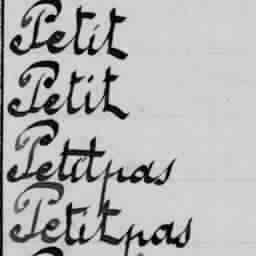 Petit
Petit
Petitpas
Petitpas